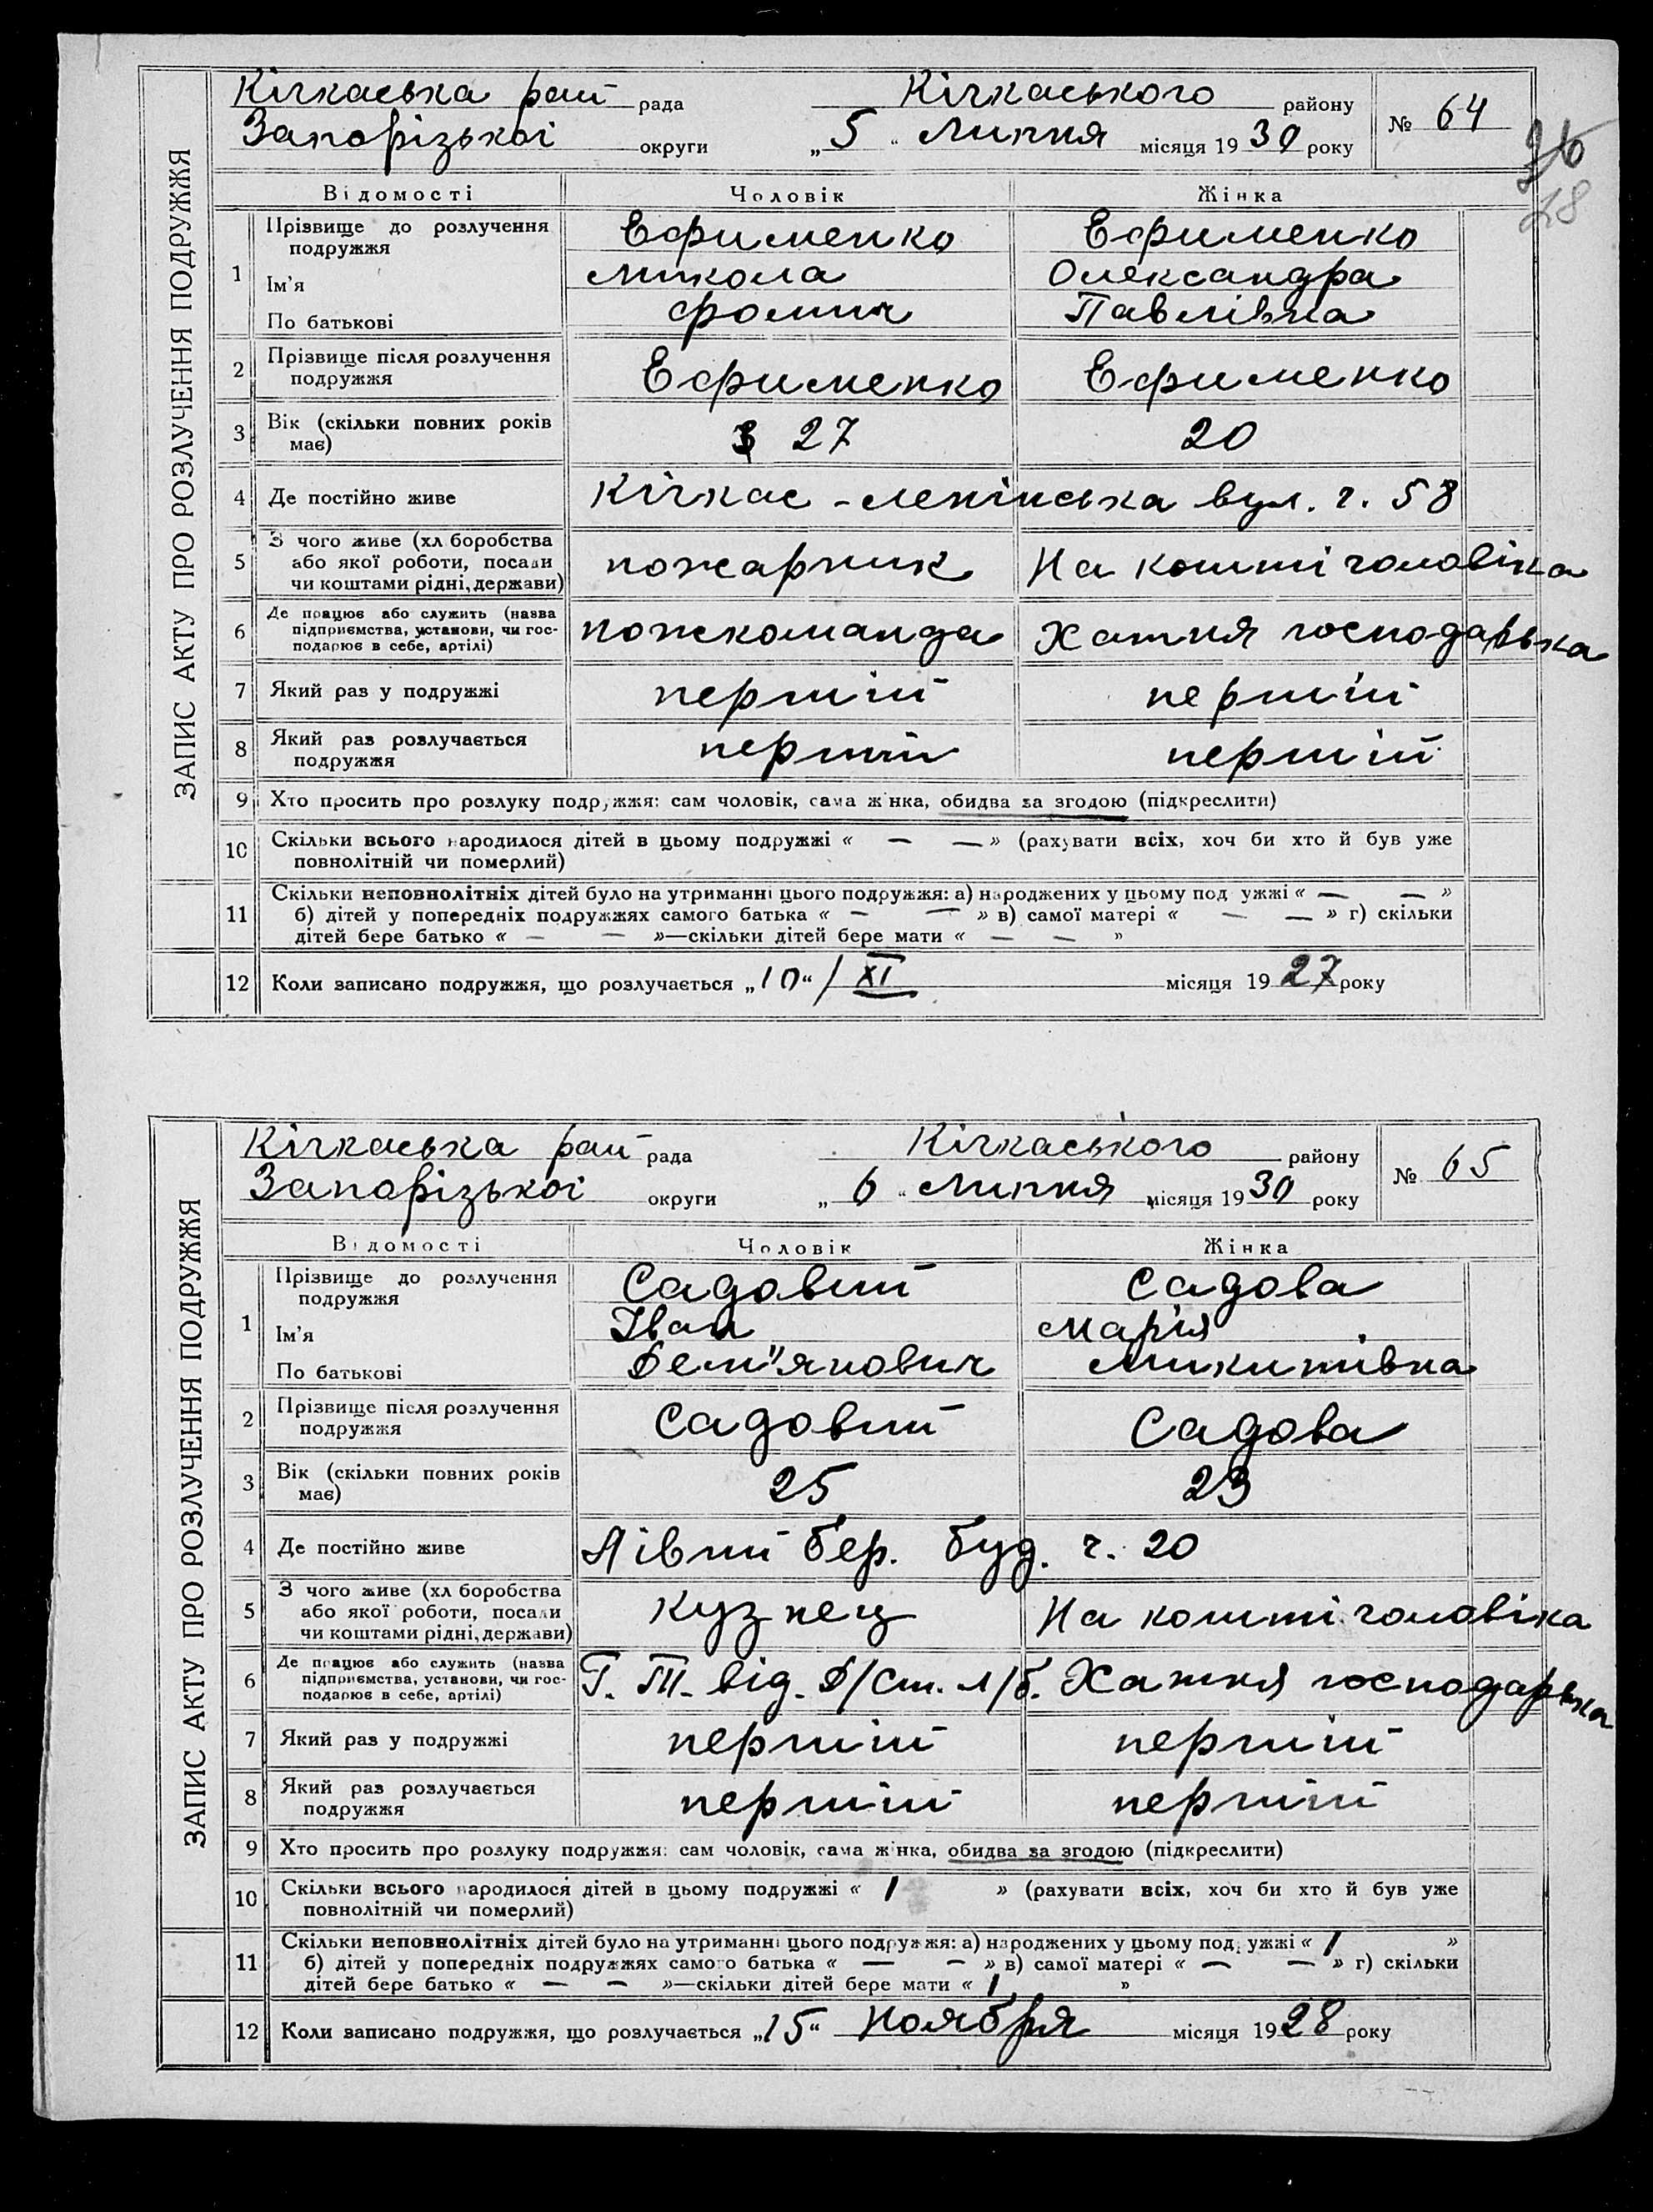 ЗАПИС АКТУ ПРО РОЗЛУЧЕННЯ ПОДРУЖЖЯ
Кічкаська рай рада Кічкаського району № 64
Запорізької округи „5“ Липня місяця 1930 року
28
Відомості Чоловік Жінка
1 Прізвище до розлучення подружжя Ефименко Ефименко
Ім'я Микола Олександра
По батькові Фомич Павлівна
2 Прізвище після розлучення подружжя Ефименко Ефименко
3 Вік (скільки повних років має) 27 20
4 Де постійно живе Кічкас - Ленінська вул. ч. 58
5 З чого живе (хліборобства або якої роботи, посади чи коштами рідні, держави) пожарник На кошті чоловіка
6 Де працює або служить (назва підприємства, установи, чи господарює в себе, артілі) пожкоманда Хатня господарька
7 Який раз у подружжі перший перший
8 Який раз розлучається подружжя перший перший
9 Хто просить про розлуку подружжя: сам чоловік, сама жінка, обидва за згодою (підкреслити)
10 Скільки всього народилося дітей в цьому подружжі « — — » (рахувати всіх, хоч би хто й був уже
повнолітній чи померлий)
11 Скільки неповнолітніх дітей було на утриманні цього подружжя: а) народжених у цьому подружжі « — — »
б) дітей у попередніх подружжях самого батька « — — » в) самої матері « — — » г) скільки
дітей бере батько « — — »—скільки дітей бере мати « — — »
12 Коли записано подружжя, що розлучається „10“/XI місяця 1927 року
ЗАПИС АКТУ ПРО РОЗЛУЧЕННЯ ПОДРУЖЖЯ
Кічкаська рай рада Кічкаського району № 65
Запорізької округи „6“ Липня місяця 1930 року
Відомості Чоловік Жінка
1 Прізвище до розлучення подружжя Садовий Садова
Ім'я Іван Марія
По батькові Дем"янович Микитівна
2 Прізвище після розлучення подружжя Садовий Садова
3 Вік (скільки повних років має) 25 23
4 Де постійно живе Лівий бер. буд. ч. 20
5 З чого живе (хліборобства або якої роботи, посади чи коштами рідні, держави) кузнец На кошті чоловіка
6 Де працює або служить (назва підприємства, установи, чи господарює в себе, артілі) Г. Т. від. Д/ст. л/б. Хатня господарька
7 Який раз у подружжі перший перший
8 Який раз розлучається подружжя перший перший
9 Хто просить про розлуку подружжя: сам чоловік, сама жінка, обидва за згодою (підкреслити)
10 Скільки всього народилося дітей в цьому подружжі « 1 » (рахувати всіх, хоч би хто й був уже
повнолітній чи померлий)
11 Скільки неповнолітніх дітей було на утриманні цього подружжя: а) народжених у цьому подружжі « 1 »
б) дітей у попередніх подружжях самого батька « — — » в) самої матері « — — » г) скільки
дітей бере батько « — — »—скільки дітей бере мати « 1 »
12 Коли записано подружжя, що розлучається „15“ Ноября місяця 1928 року